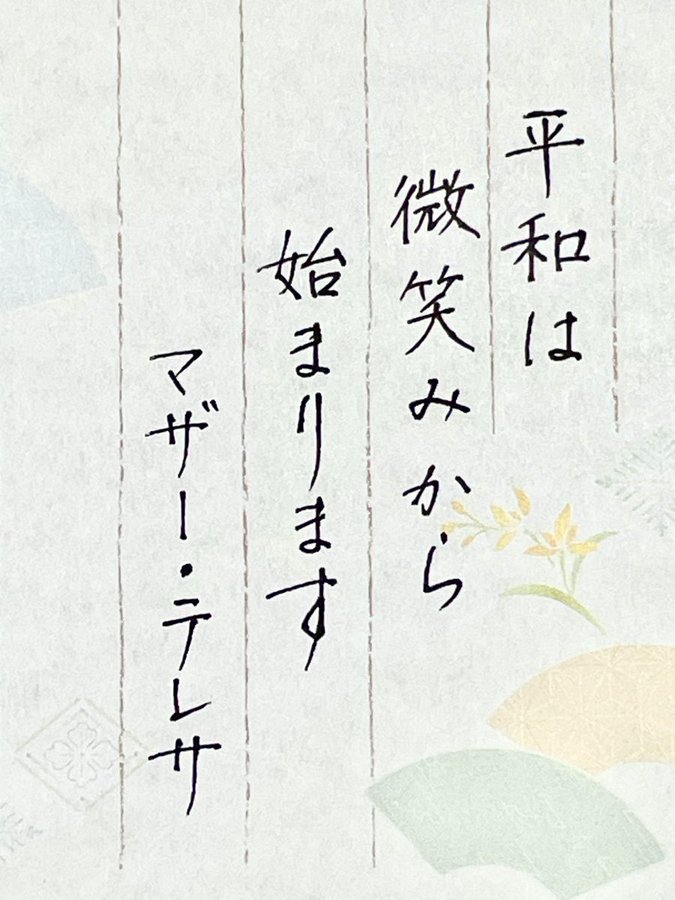 平和は
微笑みから
始まります
マザー・テレサ